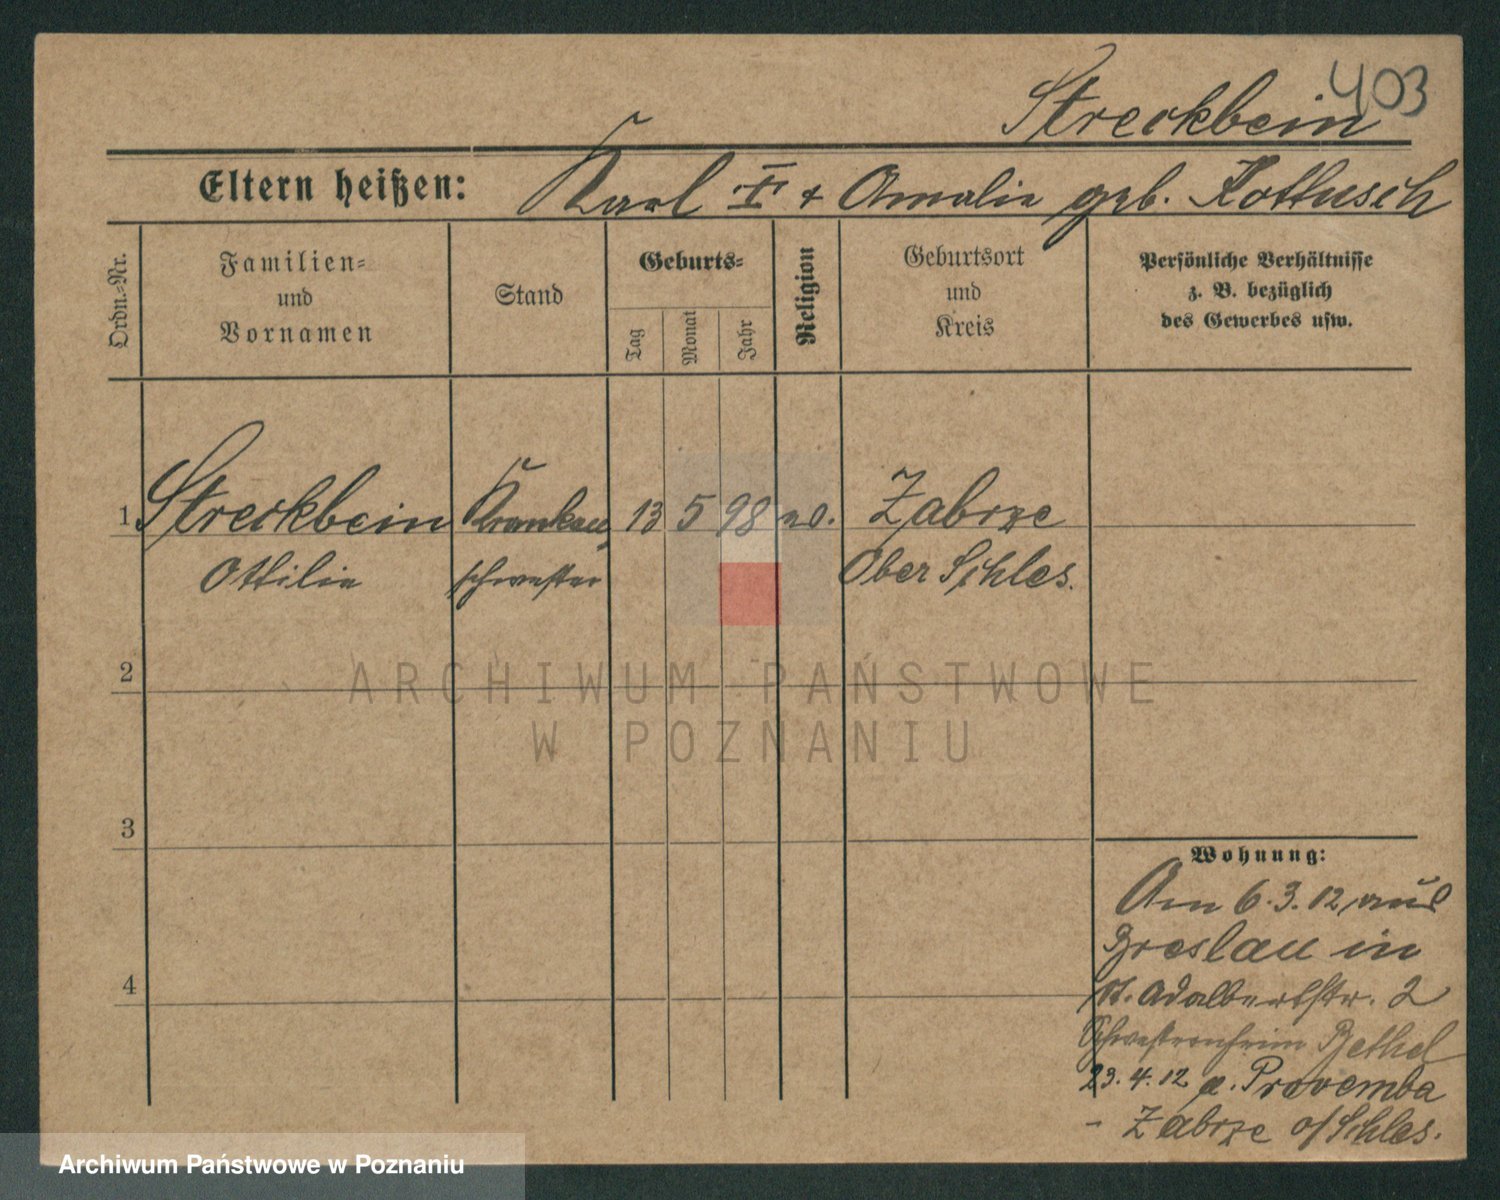 403
Streckbein
Eltern heißen: Karl † + Amalie geb. Kottusch
Ordn.=Nr.
Familien=
und
Vornamen
Stand
Geburts=
Tag
Monat
Jahr
Religion
Geburtsort
und
Kreis
Persönliche Verhältnisse
z. B. bezüglich
des Gewerbes usw.
1 Streckbein Kranken 13 5 98 Zabrze
Ottilie schwester Ober Schles.
2
3
4
Wohnung:
Am 6.3.12 aus
Breslau in
St. Adalbertstr. 2
Schwesternheim Bethel
23.4.12 n.
- Zabrze o/Schles.
ARCHIWUM PAŃSTWOWE
W POZNANIU
Archiwum Państwowe w Poznaniu